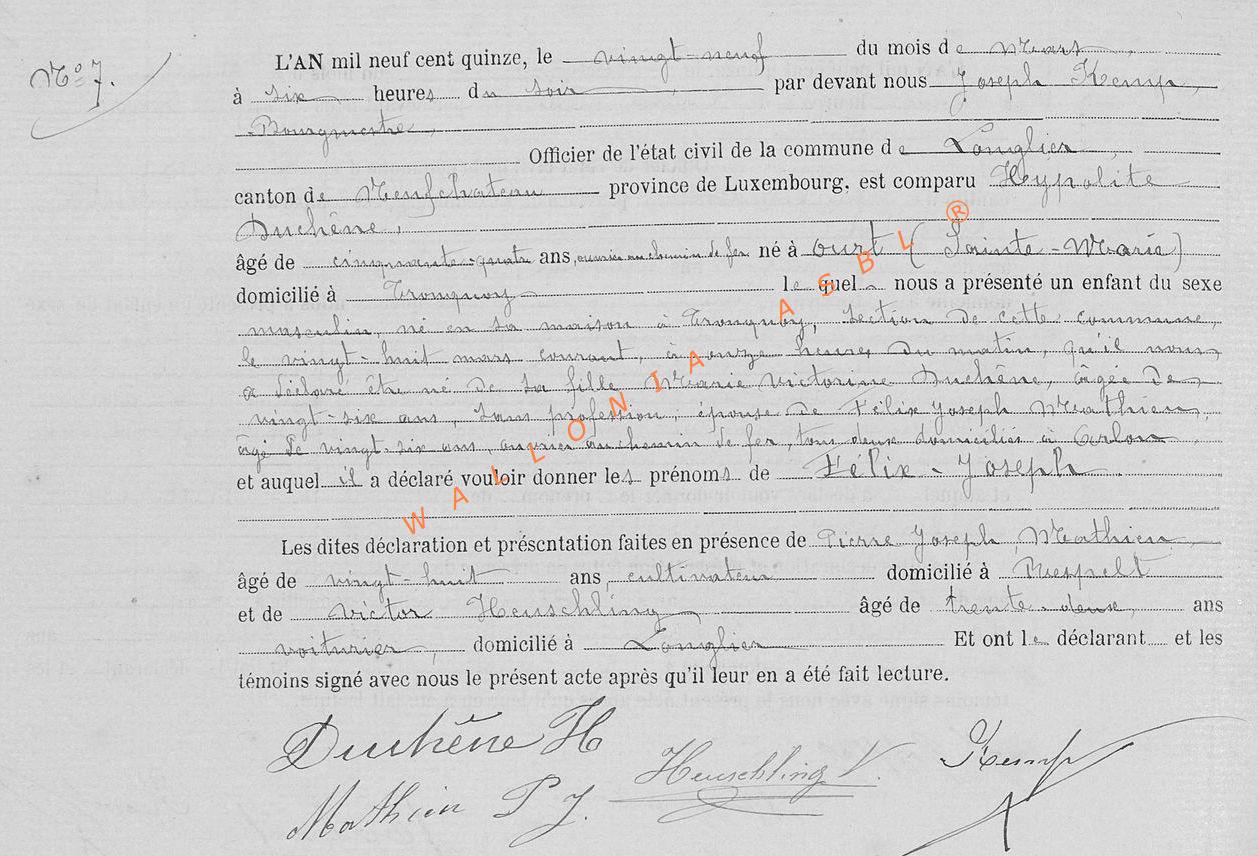 N° 7.
L'AN mil neuf cent quinze, le vingt-neuf du mois de Mars,
à six heures du soir, par devant nous Joseph Kemp,
Bourgmestre,
Officier de l'état civil de la commune de Longlier,
canton de Neufchateau province de Luxembourg, est comparu Hypolite
Duchêne,
âgé de cinquante-quatre ans, ouvrier au chemin de fer né à Ourt (Sainte-Marie)
domicilié à Tronquoy lequel nous a présenté un enfant du sexe
masculin, né en sa maison à Tronquoy, section de cette commune,
le vingt-huit mars courant, à onze heures du matin, qu'il nous
a déclaré être né de sa fille Marie Victorine Duchêne, âgée de
vingt-six ans, sans profession, épouse de Félix Joseph Mathieu,
âgé de vingt-six ans, ouvrier au chemin de fer, tous deux domiciliés à Arlon
et auquel il a déclaré vouloir donner les prénoms de Félix-Joseph
Les dites déclaration et présentation faites en présence de Pierre Joseph Mathieu,
âgé de vingt-huit ans, cultivateur domicilié à Respelt
et de Victor Heuschling âgé de trente-deux, ans
voiturier, domicilié à Longlier Et ont le déclarant et les
témoins signé avec nous le présent acte après qu'il leur en a été fait lecture.
Duchêne H
Heuschling V.
Kemp
Mathieu P J.
WALLONIA ASBL ®